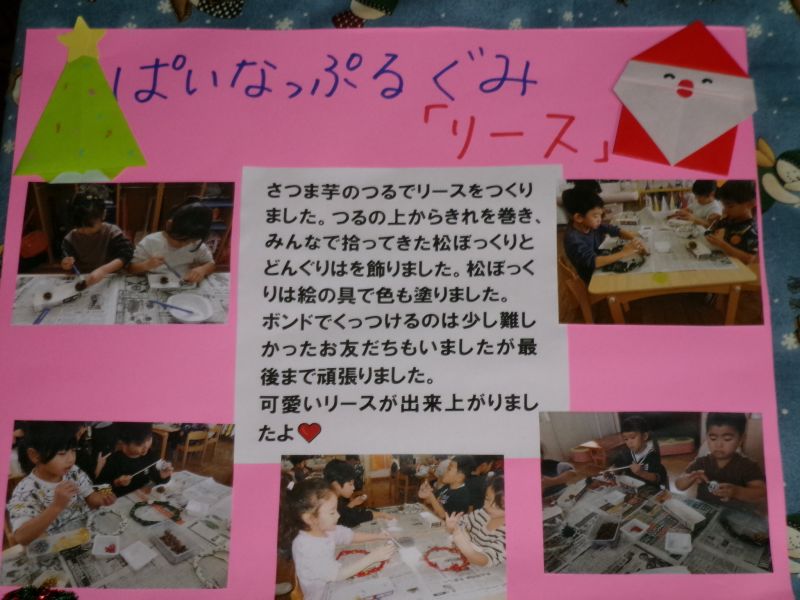 ぱいなっぷるぐみ
「リース」
さつま芋のつるでリースをつくり
ました。つるの上からきれを巻き、
みんなで拾ってきた松ぼっくりと
どんぐりはを飾りました。松ぼっく
りは絵の具で色も塗りました。
ボンドでくっつけるのは少し難し
かったお友だちもいましたが最
後まで頑張りました。
可愛いリースが出来上がりまし
たよ❤